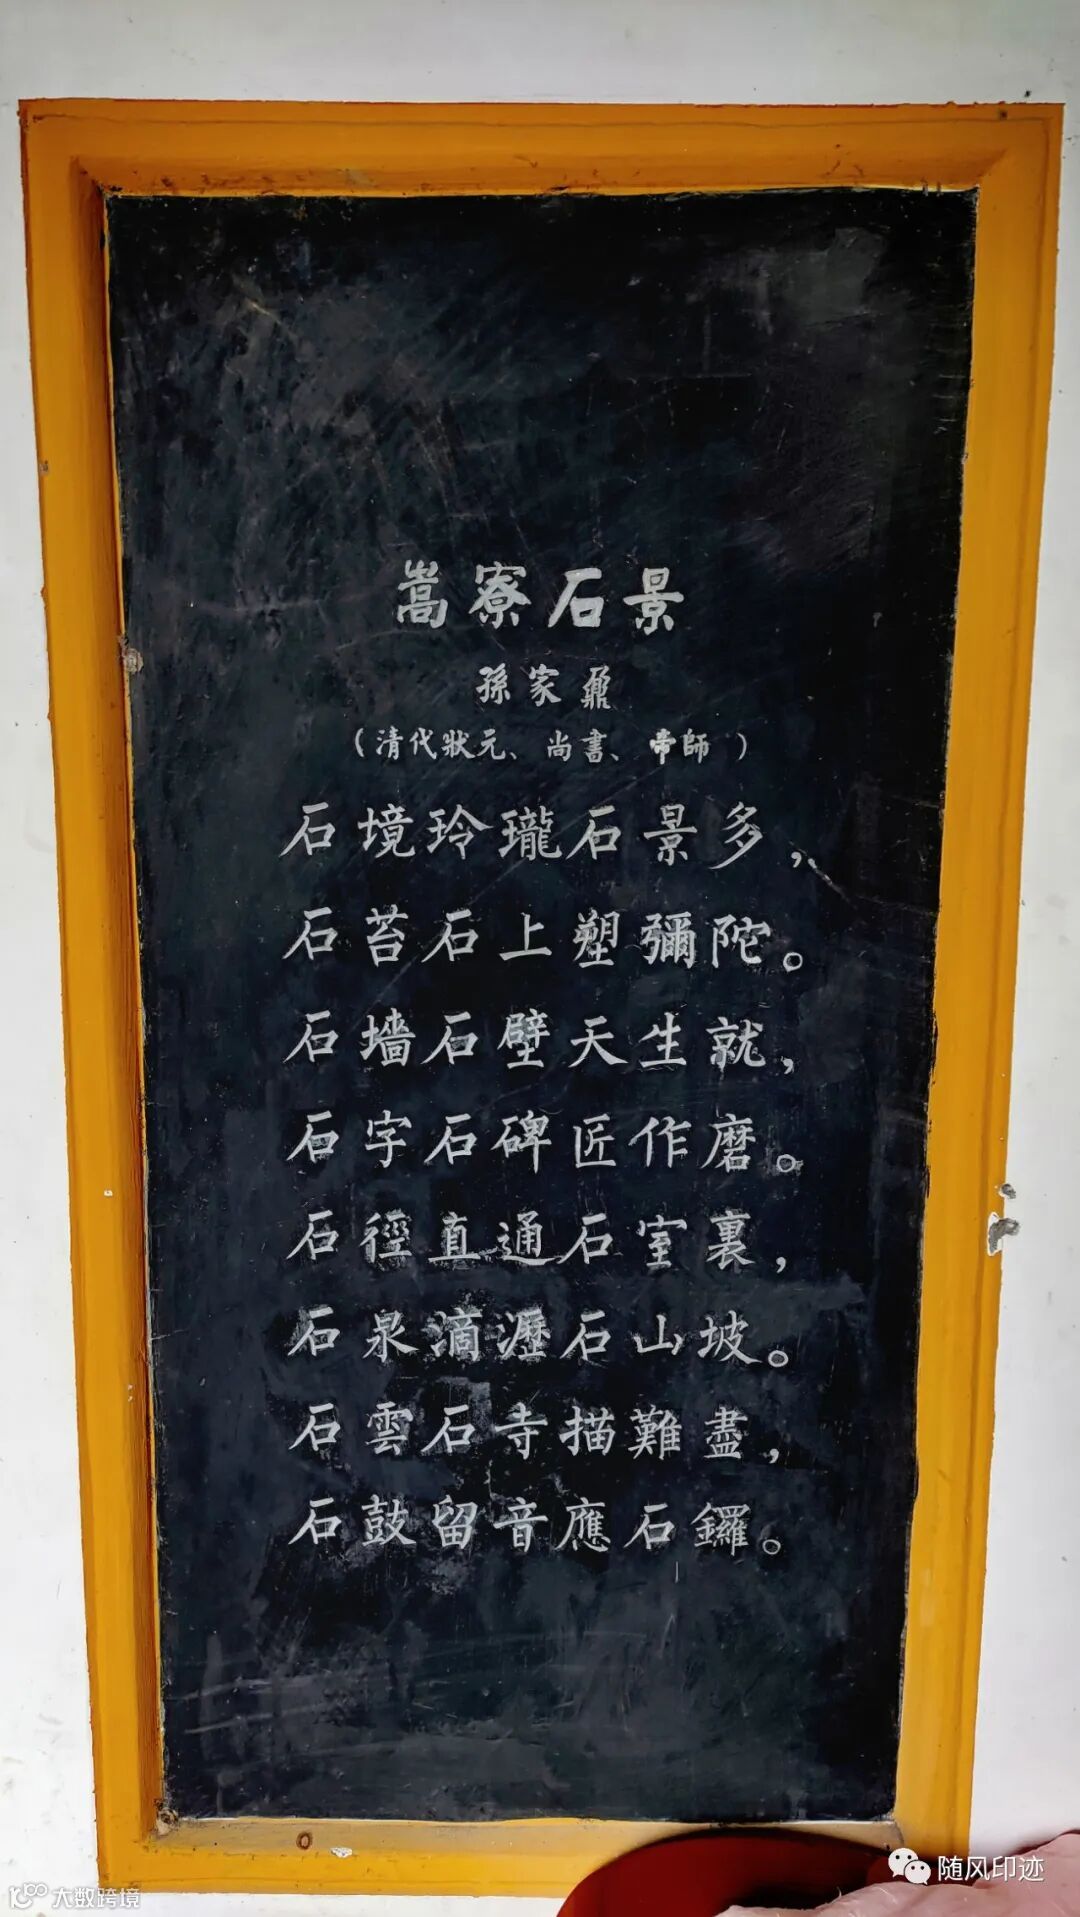 嵩寮石景
孫家鼐
（清代狀元、尚書、帝師）
石境玲瓏石景多，
石苔石上塑彌陀。
石墻石壁天生就，
石字石碑匠作磨。
石徑直通石室裏，
石泉滴瀝石山坡。
石雲石寺描難盡，
石鼓留音應石鑼。
随风印迹
大数跨境